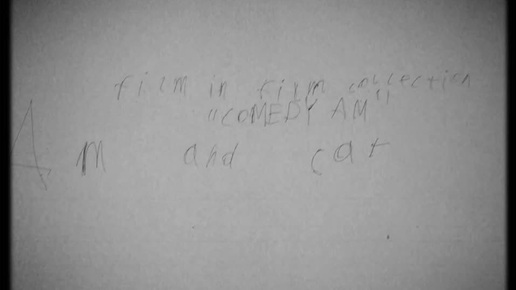 film in film collection
"COMEDY AM"
Am and cat